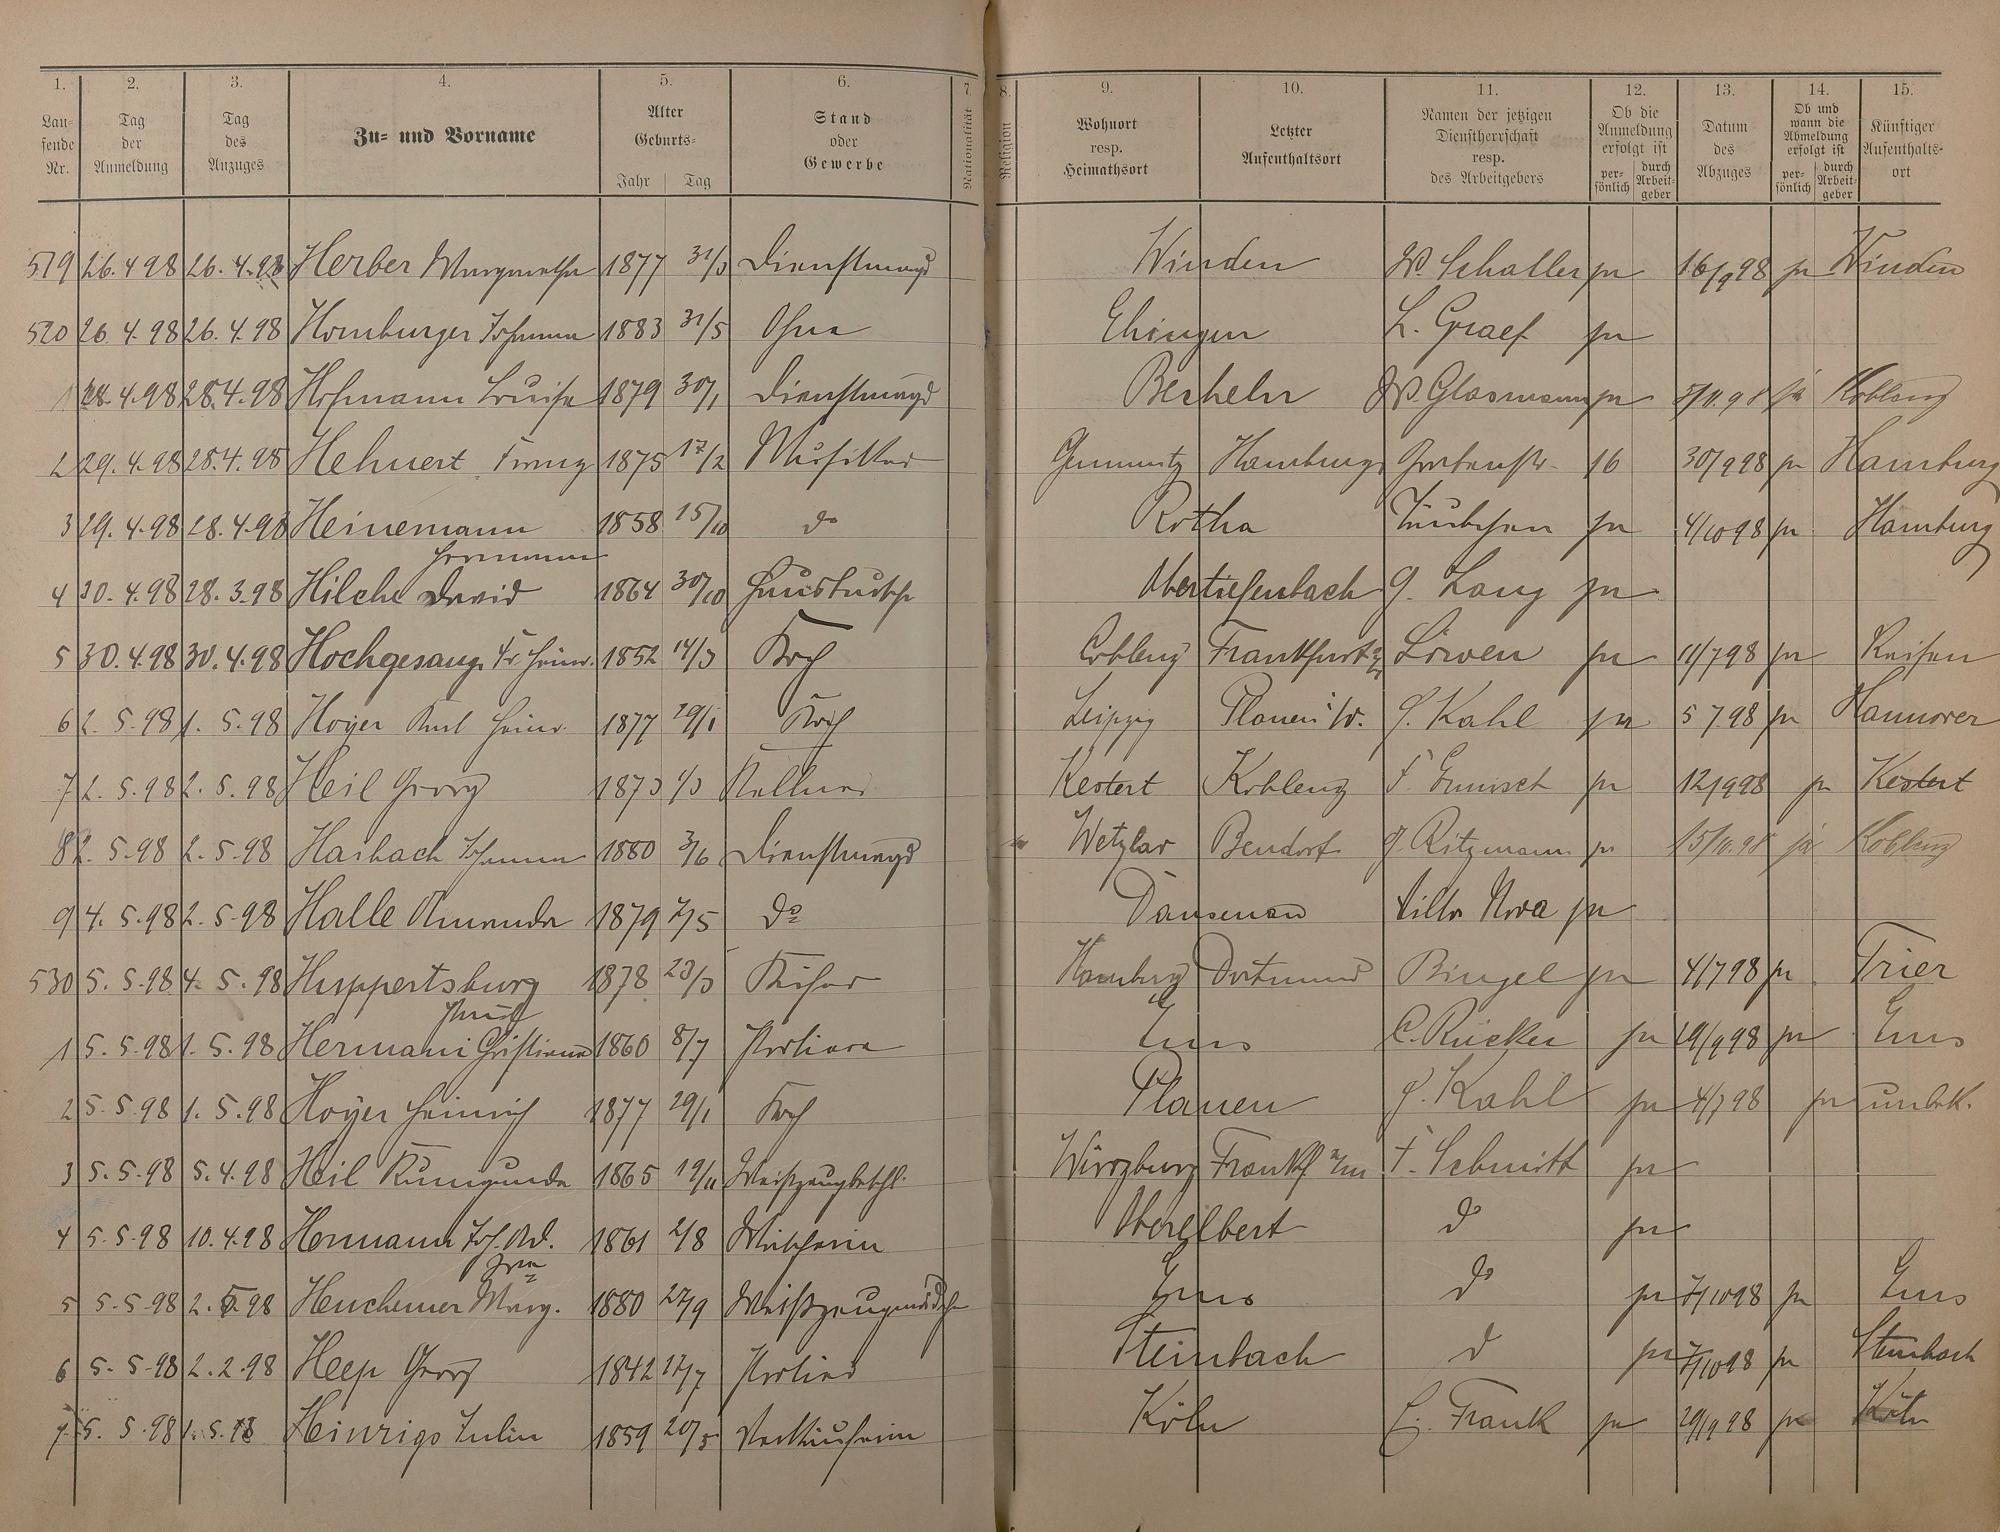 1. 2. 3. 4. 5. 6. 7. 8. 9. 10. 11. 12. 13. 14. 15.
Laufende Nr. Tag der Anmeldung Tag des Anzuges Zu- und Vorname Alter Geburts- Jahr Tag Stand oder Gewerbe Nationalität Religion Wohnort resp. Heimathsort Letzter Aufenthaltsort Namen der jetzigen Dienstherrschaft resp. des Arbeitgebers Ob die Anmeldung erfolgt ist persönlich durch Arbeitgeber Datum des Abzuges Ob und wann die Abmeldung erfolgt ist persönlich durch Arbeitgeber Künftiger Aufenthaltsort
519 26.4 98 26.4.98 Herber Margarethe 1877 31/3 Dienstmagd Winden W. Schaller ja 16/9 98 ja Winden
520 26 4.98 26.4.98 Homburger Johanna 1883 31/5 Ohne Ehingen L. Graef ja
1 28.4.98 28.4.98 Hofmann Luise 1879 30/1 Dienstmagd Becheln W. Glasmann ja 5/11.98 ja Koblenz
2 29.4.98 28.4.98 Hehnert Franz 1875 17/2 Musiker Hamburg Grabenstr. 16 30/9 98 ja Hamburg
3 29.4.98 28.4.98 Heinemann 1858 15/10 do Rotha ja 4/10 98 ja Hamburg
Hermann
4 30.4.98 28.3.98 Hilche David 1864 30/10 Hausbursche Obertiefenbach G. Lang ja
5 30.4.98 30.4.98 Hochgesang Fr. Heinr. 1852 14/3 Koch Coblenz Frankfurt Löwen ja 11/7 98 ja Reisen
6 2.5.98 1.5.98 Hoyer Karl Heinr. 1877 29/1 Koch Leipzig Plauen i/V. G. Kahl ja 5 7 98 ja Hannover
7 2.5.98 2.5.98 Heil Georg 1873 1/3 Kellner Kestert Koblenz ja 12/9 98 ja Kestert
8 2.5.98 2.5.98 Hasbach Johanna 1880 3/6 Dienstmagd Wetzlar Bendorf G. Ritzmann ja 15/11.98 ja Koblenz
9 4.5.98 2.5.98 Halle Amanda 1879 2/5 do Dausenau Villa Nova ja
530 5.5.98 4.5.98 Huppertsburg 1878 23/3 Küfer Hamburg Dortmund Bingel ja 4/7 98 ja Trier
Paul
1 5.5.98 1.5.98 Hermani Christiane 1860 8/7 Ems C. Rücker ja 29/9 98 ja Ems
2 5.5.98 1.5.98 Hoyer Heinrich 1877 29/1 Koch Plauen G. Kahl ja 4/7 98 ja unbek.
3 5.5.98 5.4.98 Heil Kunigunde 1865 19/11 Weißzeugbeschl. Würzburg Frankf a/m F. Schmitt ja
4 5.5.98 10.4.98 Hermann Jos. Ad. 1861 2/8 Wäscherin Oberelbert do ja
Frau
5 5.5.98 2.5.98 Henchemer Marg. 1880 27/9 Weißzeugmädchen Ems do ja 7/10 98 ja Ems
6 5.5.98 2.2.98 Heep Georg 1842 17/7 Portier Steinbach do ja 7/10 98 ja Steinbach
7 5.5.98 1.5.98 Hinrigs Julie 1859 20/5 Verkäuferin Köln E. Frank ja 29/9 98 ja Köln